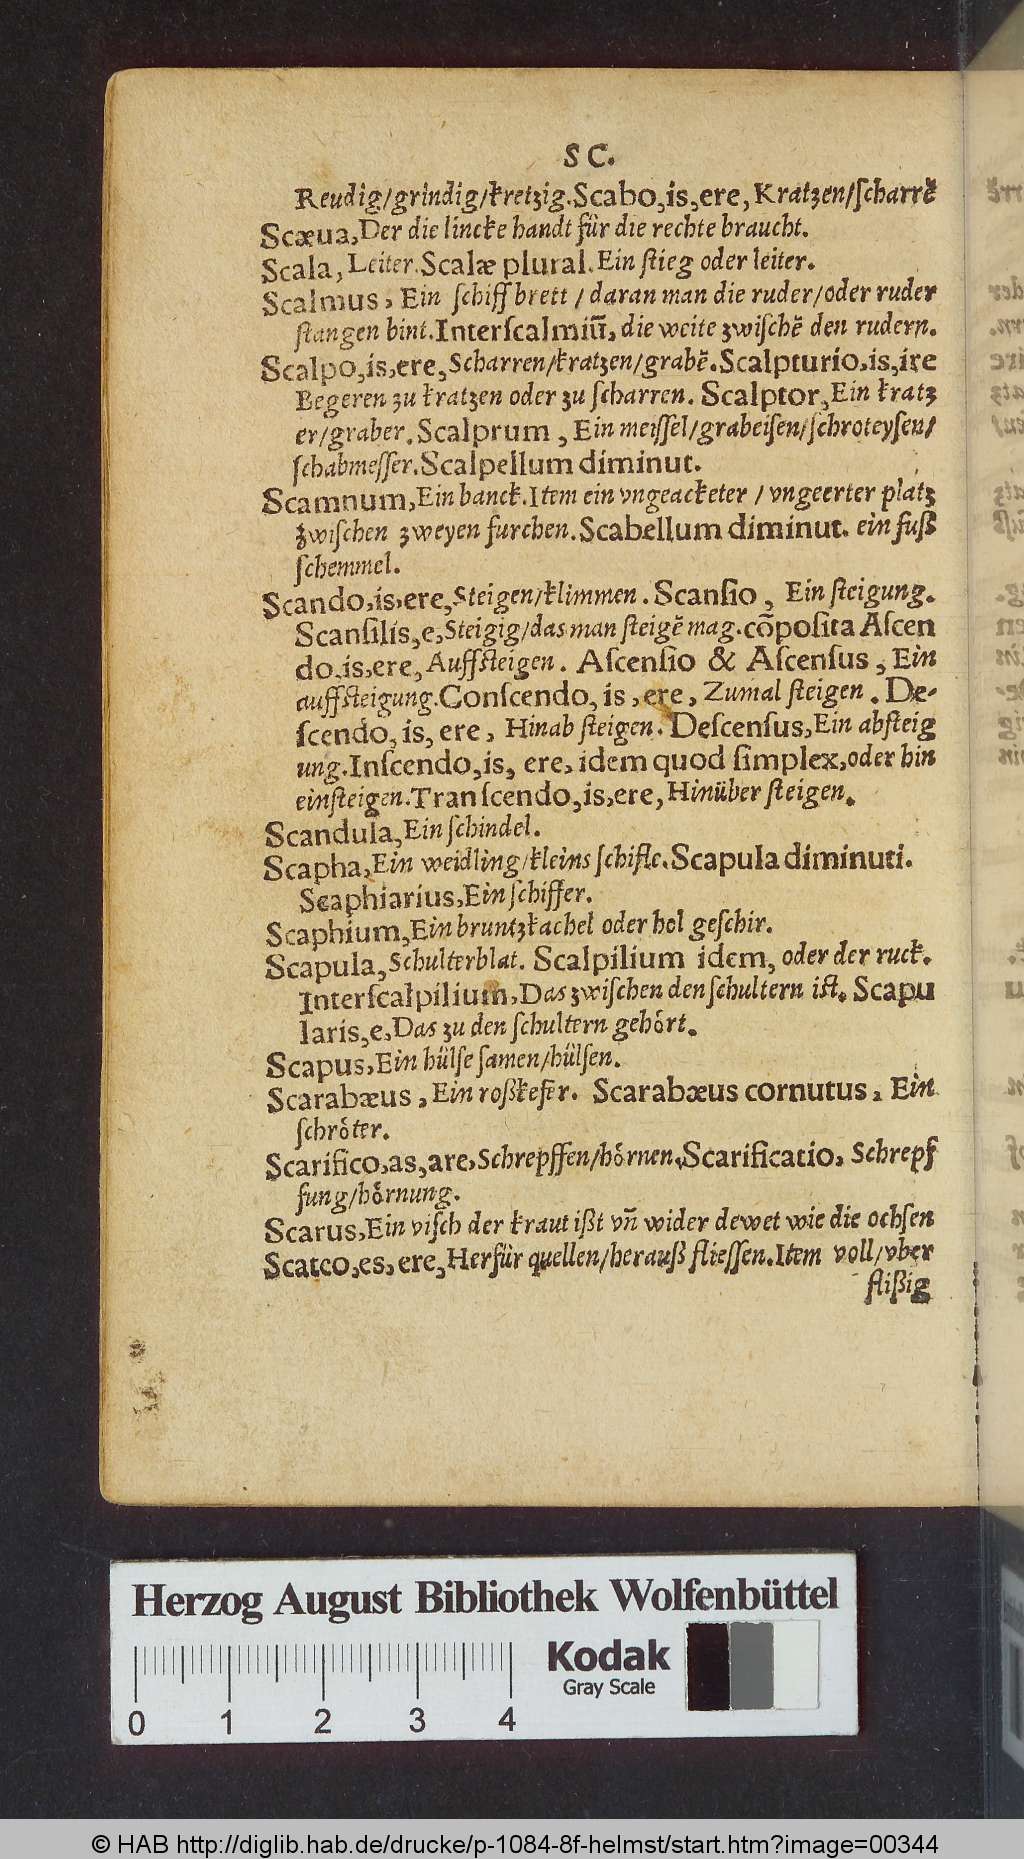 S C.
Reudig/grindig/kretzig.Scabo,is,ere, Kratzen/ſcharrẽ
Scæua,Der die lincke handt fu̍r die rechte braucht.
Scala, Leiter.Scalæ plural.Ein ſtieg oder leiter.
Scalmus, Ein ſchiff brett / daran man die ruder/oder ruder
ſtangen bint.Interſcalmiū, die weite zwiſchẽ den rudern.
Scalpo,is,ere,Scharren/kratzen/grabẽ.Scalpturio,is,ire
Begeren zu kratzen oder zu ſcharren. Scalptor,Ein kratz
er/graber.Scalprum , Ein meiſſel/grabeiſen/ſchroteyſen/
ſchabmeſſer.Scalpellum diminut.
Scamnum,Ein banck.Item ein vngeacketer / vngeerter platz
zwiſchen zweyen furchen.Scabellum diminut. ein fuß
ſchemmel.
Scando,is,ere,Steigen/klimmen. Scanſio, Ein ſteigung.
Scanſilis,e,Steigig/das man ſteigẽ mag.cõpoſita Aſcen
do,is,ere, Auffſteigen. Aſcenſio & Aſcenſus, Ein
auffſteigung.Conſcendo, is, ere, Zumal ſteigen . De-
ſcendo, is, ere, Hinab ſteigen. Deſcenſus,Ein abſteig
ung.Inſcendo,is, ere, idem quod ſimplex,oder hin
einſteigen.Tranſcendo,is,ere, Hinüber ſteigen.
Scandula,Ein ſchindel.
Scapha,Ein weidling/kleins ſchifle.Scapula diminuti.
Scaphiarius,Ein ſchiffer.
Scaphium,Ein bruntzkachel oder hol geſchir.
Scapula,Schulterblat. Scalpilium idem, oder der ruck.
Interſcalpilium,Das zwiſchen den ſchultern iſt. Scapu
laris,e,Das zu den ſchultern gehört.
Scapus,Ein hülſe ſamen/hülſen.
Scarabæus, Ein roßkefer. Scarabæus cornutus, Ein
ſchröter.
Scarifico,as,are,Schrepffen/hörnen.Scarificatio, Schrepf
fung/hörnung.
Scarus,Ein viſch der kraut ißt vñ wider dewet wie die ochſen
Scateo,es,ere,Herfür quellen/herauß flieſſen.Item voll/vber
flißig
Herzog August Bibliothek Wolfenbüttel
Kodak
Gray Scale
0 1 2 3 4
© HAB http://diglib.hab.de/drucke/p-1084-8f-helmst/start.htm?image=00344